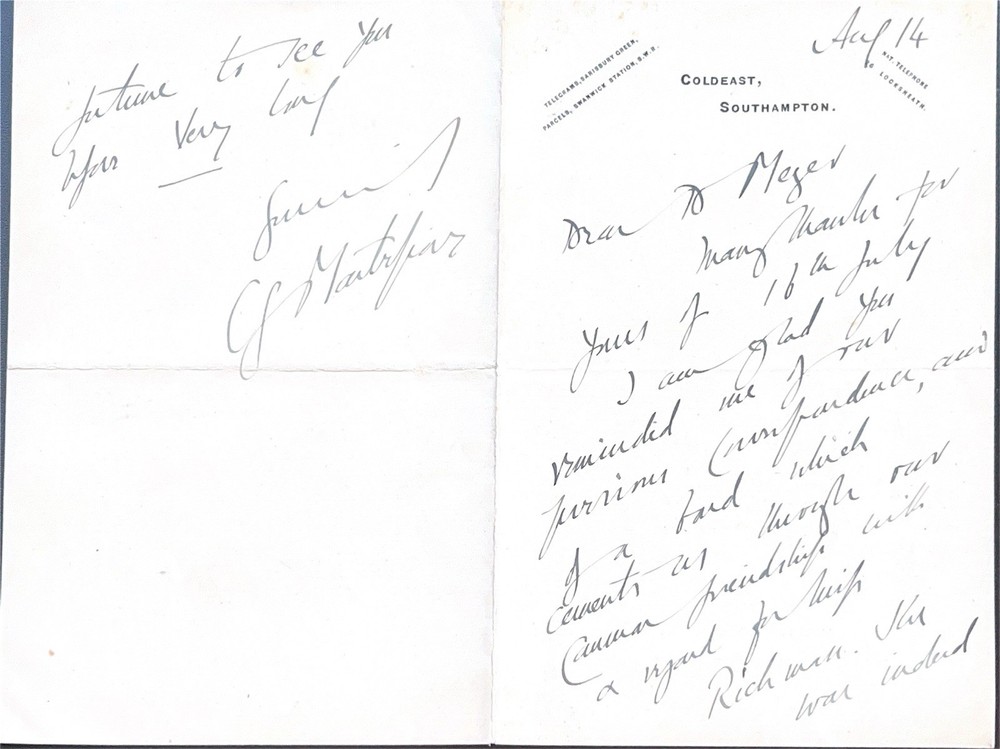 Aug 14
TELEGRAMS, SARISBURY GREEN.
PARCELS, SWANWICK STATION, S.W.R.
NAT. TELEPHONE
LOCKSHEATH.
COLDEAST,
SOUTHAMPTON.
Dear Dr Meyer
Many thanks for
yours of 16th July
I am glad you
reminded me of our
previous correspondence, and
of a bond which
cements us through our
common friendship with
& regard for Miss
Richman. She
was indeed
fortune to see you
before very long
Sincerely
CG Montefiore